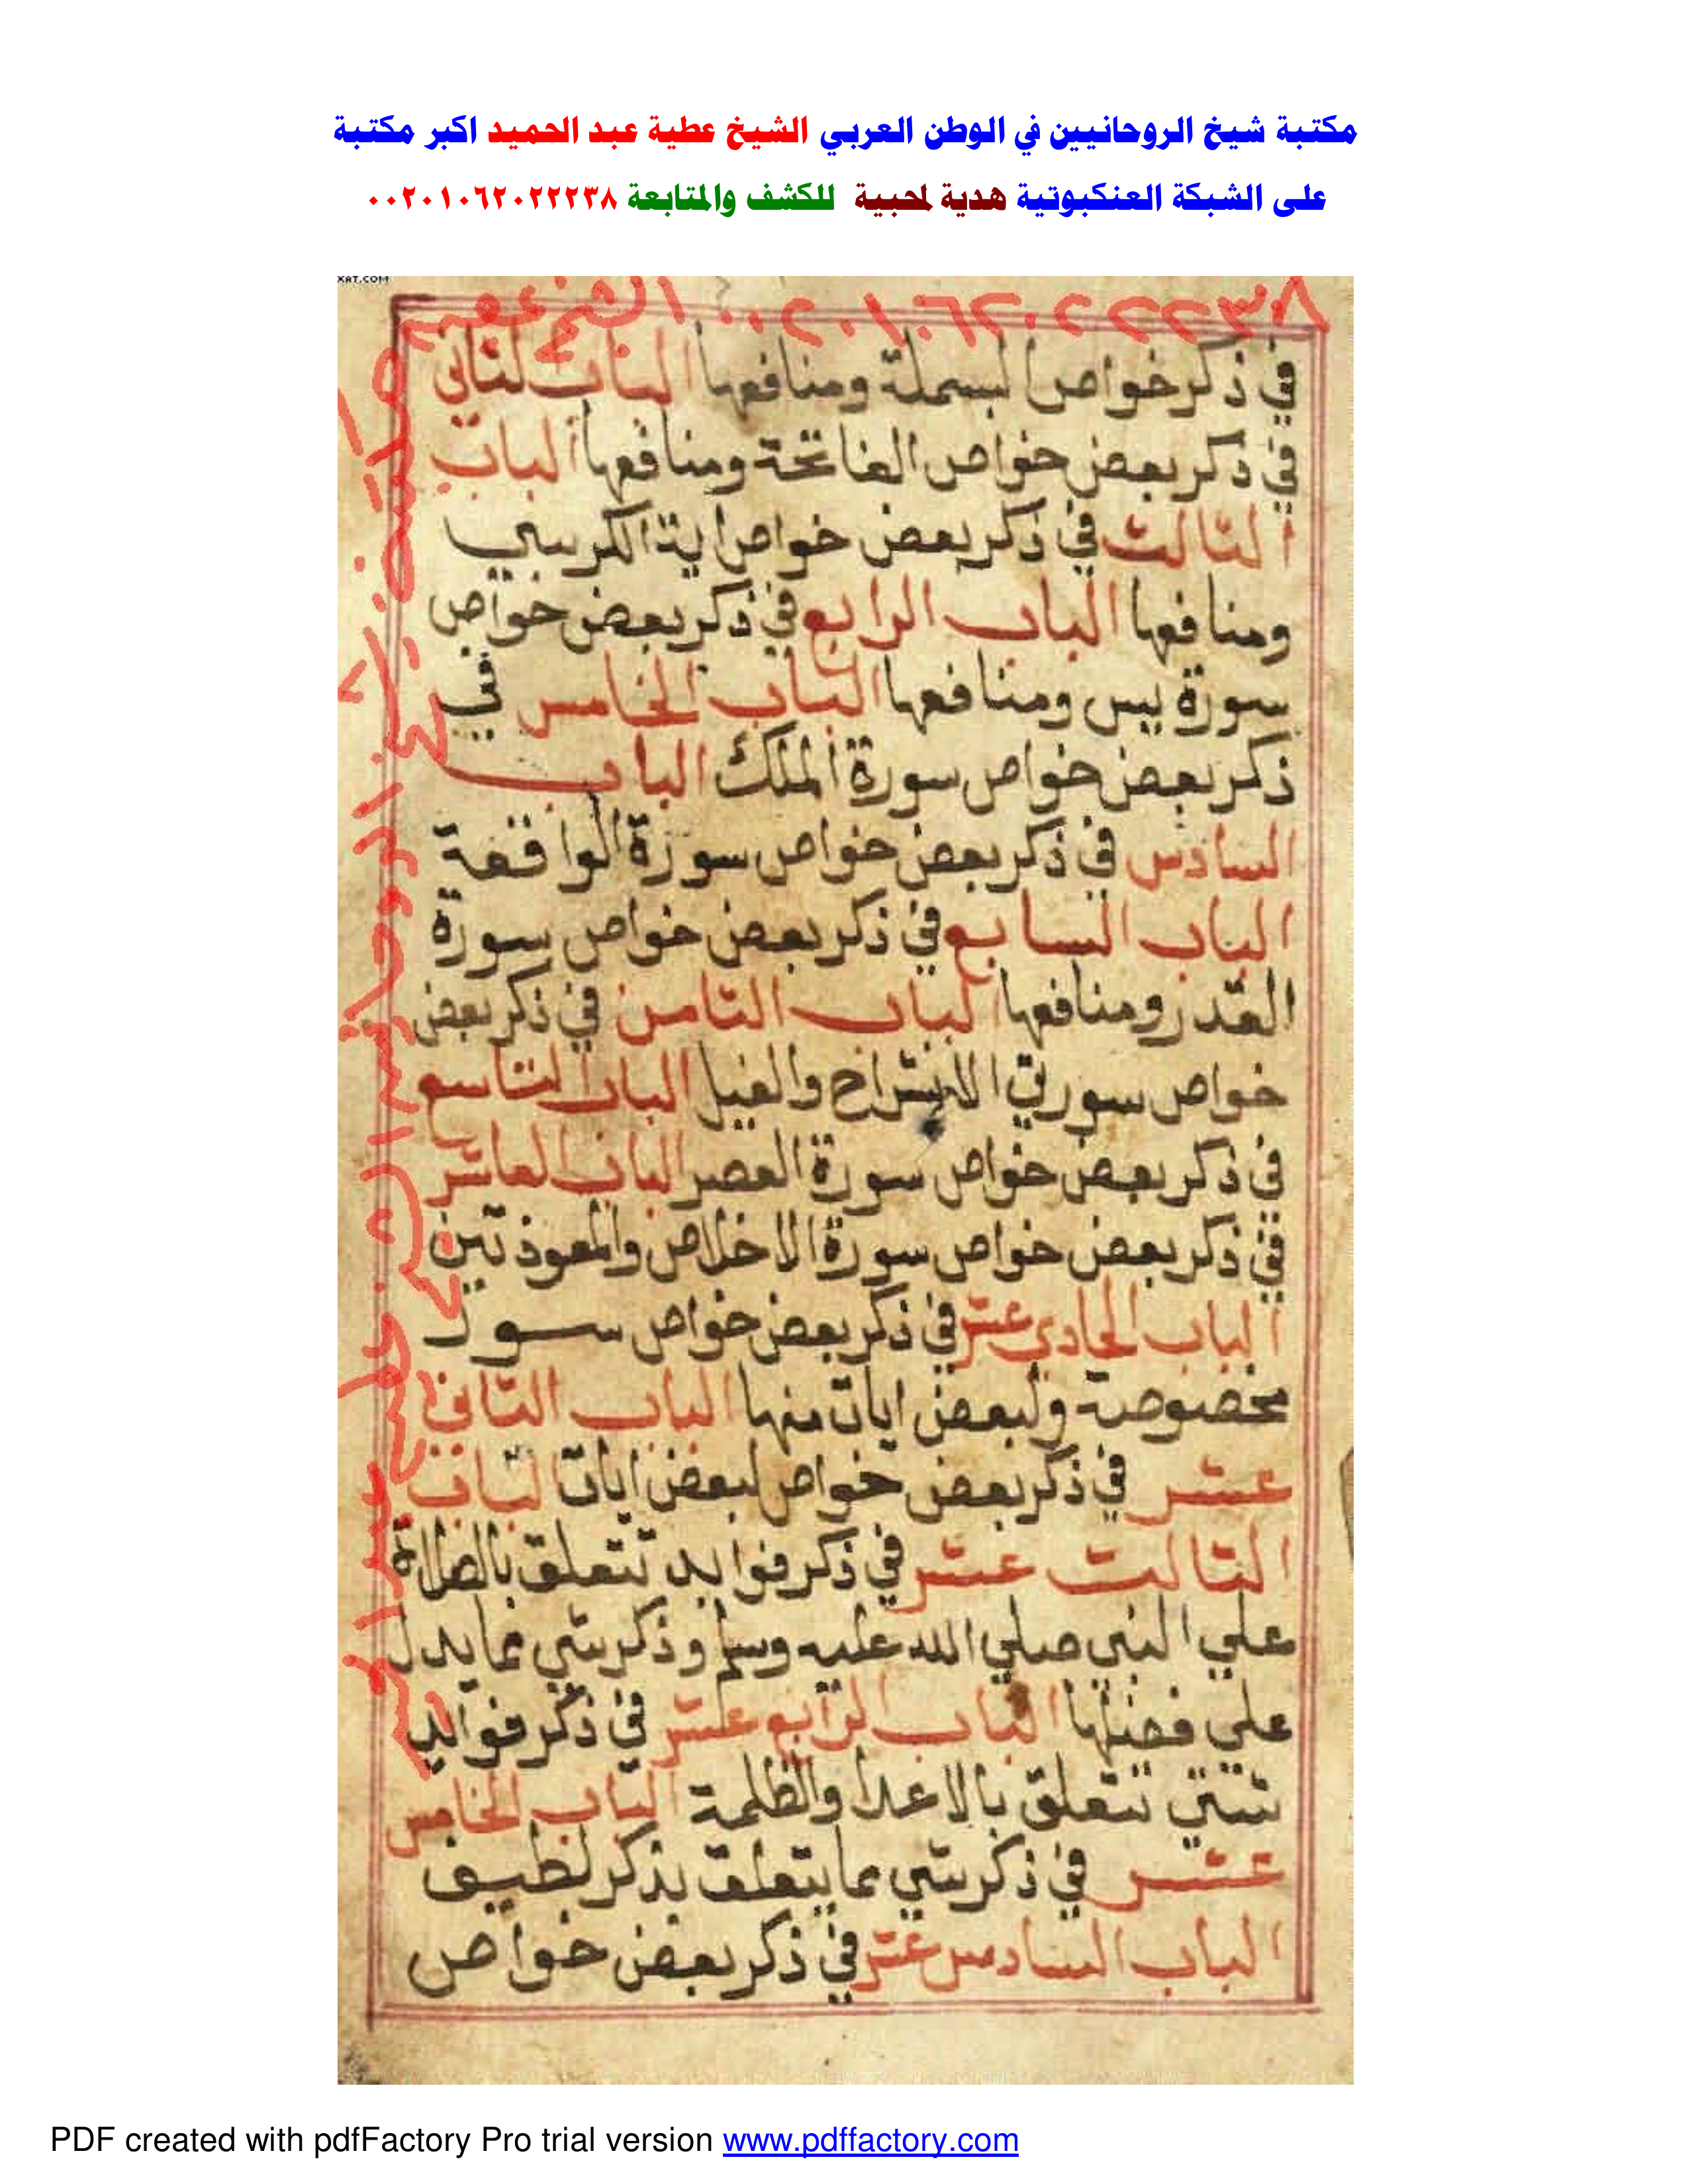 مكتبة شيخ الروحانيين في الوطن العربي الشيخ عطية عبد الحميد اكبر مكتبة
على الشبكة العنكبوتية هدية لمحبية للكشف والمتابعة ٠٠٢٠١٠٦٢٠٢٢٢٣٨
XAT.COM
٠٠٢٠١٠٦٢٠٢٢٢٣٨ الشيخ عطيه
في ذكر خواص البسملة ومنافعها الباب الثاني
في ذكر بعض خواص الفاتحة ومنافعها الباب
الثالث في ذكر بعض خواص اية الكرسي
ومنافعها الباب الرابع في ذكر بعض خواص
سورة يس ومنافعها الباب الخامس في
ذكر بعض خواص سورة الملك الباب
السادس في ذكر بعض خواص سورة الواقعة
الباب السابع في ذكر بعض خواص سورة
القدر ومنافعها الباب الثامن في ذكر بعض
خواص سورتي الانشراح والفيل الباب التاسع
في ذكر بعض خواص سورة العصر الباب العاشر
في ذكر بعض خواص سورة الاخلاص والمعوذتين
الباب الحادي عشر في ذكر بعض خواص سور
مخصوصة ولبعض ايات منها الباب الثاني
عشر في ذكر بعض خواص لبعض ايات الباب
الثالث عشر في ذكر فوايد تتعلق بالصلاة
علي النبي صلي الله عليه وسلم وذكر شي مما يدل
علي فضلها الباب الرابع عشر في ذكر فوايد
شتي تتعلق بالاعدا والظلمة الباب الخامس
عشر في ذكر شي مما يتعلق بذكر لطيف
الباب السادس عشر في ذكر بعض خواص
PDF created with pdfFactory Pro trial version www.pdffactory.com